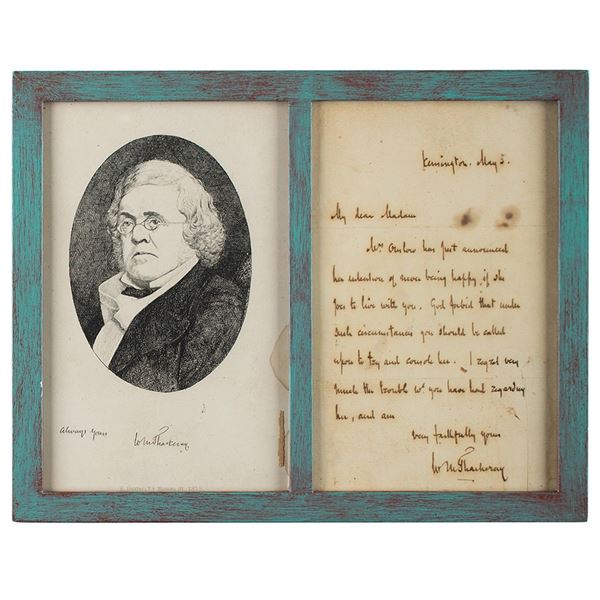 Always Yours
W M Thackeray
Kensington. May 5.
My dear Madam
Mrs Onslow has just announced
her intention of never being happy if she
goes to live with you. God forbid that under
such circumstances you should be called
upon to try and console her. I regret very
much the trouble wh you have had regarding
her, and am
very faithfully yours
W M Thackeray